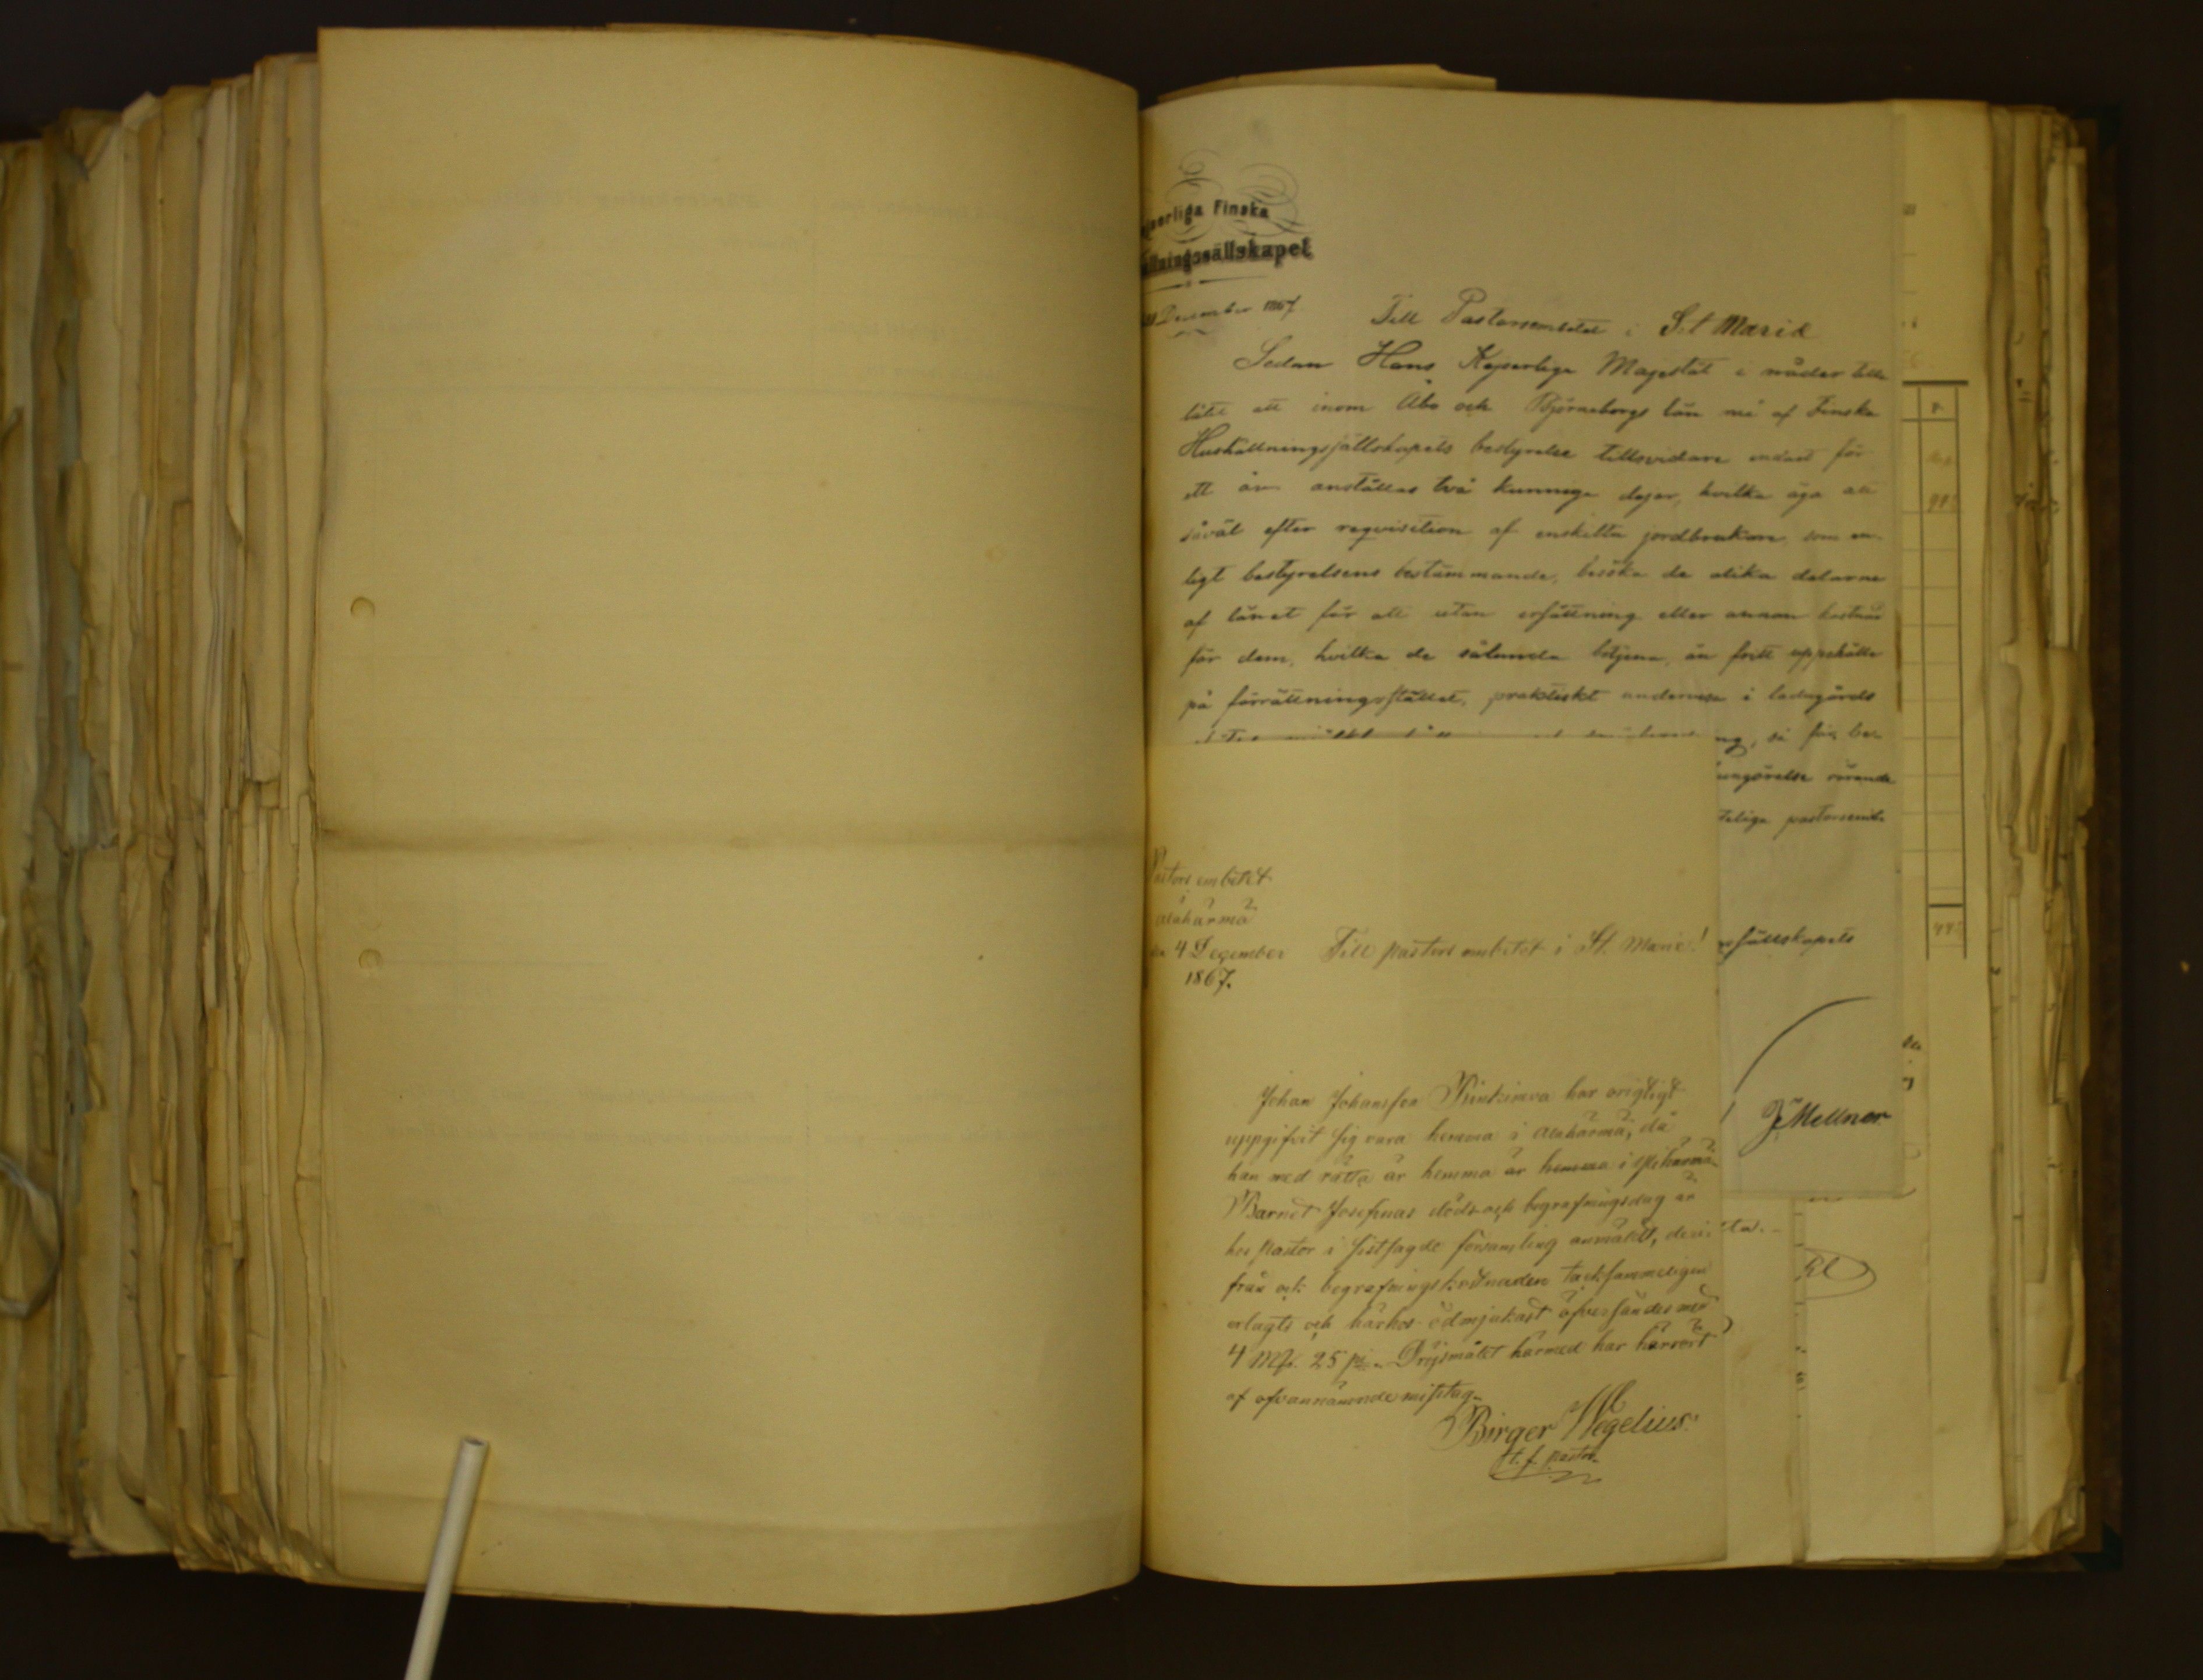 jserliga Finska
ållningssällskapet
December 1867.
Till Pastorsembetet i S:t Mariæ
Sedan Hans Kejserliga Majestät i nåder tillå
låtit att inom Åbo och Björneborgs län må af Finska
Hushållningssällskapets bestyrelse tillsvidare endast för
ett år anställas två kunniga dejor, hvilka äga att
såväl efter reqvisition af enskilta jordbrukare, som en
ligt bestyrelsens bestämmande, besöka de olika delarne
af länet för att utan ersättning eller annan kostnad
för dem, hvilka de sålunda betjena, än fritt uppehälle
på förrättningsstället, praktiskt undervisa i ladugårds
ng, så får be-
kungörelse rörande
teliga pastorsemb
Pastorsembetet
i
Alahärmä
den 4 December
1867.
Till pastorsembetet i St. Marie!
sällskapets
Johan Johansson origtigt
uppgifvit sig vara hemma i Alahärmä, då
han med rätta är hemma är hemma i Ylihärmä.
Barnet Josefinas döds- och begrafningsdag är
hos Pastor i sistsagde församling anmäldt,
från och begrafningskostnaden tacksammeligen
erlagts och härhos ödmjukast öfversändes med
4 Mk. 25 pi. Dröjsmålet härmed har härrört
af ofvannämnde misstag.
Birger Wegelius
t. f. pastor.
J Mellner